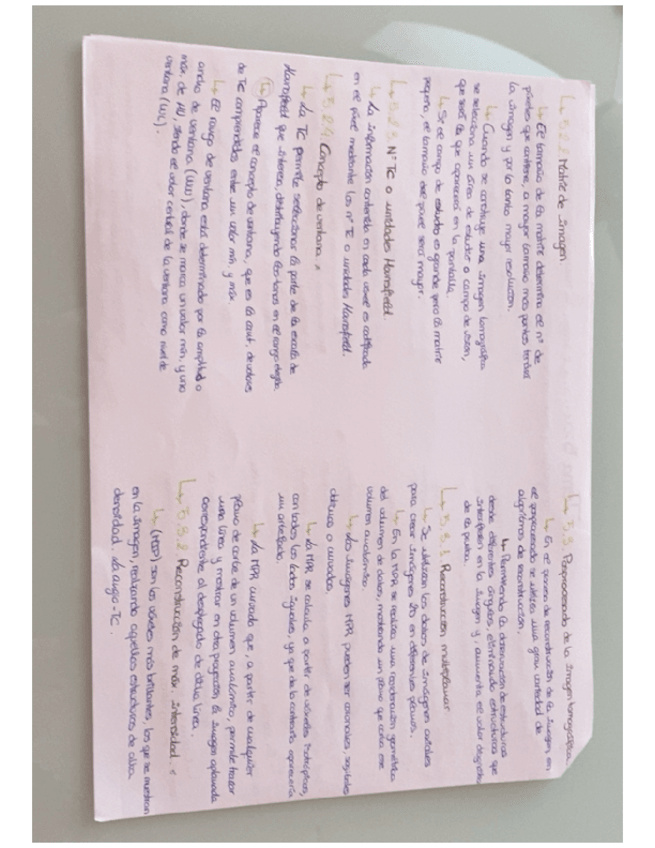 ↳ 5.2.2. Matriz de imagen.
↳ El tamaño de la matriz determina el nº de
píxeles que contiene, a mayor tamaño más puntos tendrá
la imagen y por lo tanto mayor resolución.
↳ Cuando se construye una imagen tomográfica
se selecciona un área de estudio o campo de visión,
que será la que aparezca en la pantalla.
↳ Si el campo de estudio es grande pero la matriz
pequeña, el tamaño del píxel será mayor.
↳ 5.2.3. Nº TC o unidades Hounsfield.
↳ La información contenida en cada vóxel es codificada
en el píxel mediante los nº TC o unidades Hounsfield.
↳ 5.2.4. Concepto de ventana.
↳ La TC permite seleccionar la parte de la escala de
Hounsfield que interesa, distribuyendo los tonos en el rango elegido.
↳ Aparece el concepto de ventana, que es la cant. de valores
de TC comprendidos entre un valor mín. y máx.
↳ El rango de ventana está determinado por la amplitud o
ancho de ventana (WW), donde se marca un valor mín. y uno
máx. de HU, siendo el valor central de la ventana como nivel de
ventana (WL).
↳ 5.3. Posprocesado de la imagen tomográfica.
↳ En el proceso de reconstrucción de la imagen, en
el posprocesado se utiliza una gran variedad de
algoritmos de reconstrucción.
↳ Permitiendo la observación de estructuras
desde diferentes ángulos, eliminando estructuras que
interfieran en la imagen y, aumenta el valor diagnóstico
de la prueba.
↳ 5.3.1. Reconstrucción multiplanar.
↳ Se utilizan los datos de imágenes axiales
para crear imágenes 2D en diferentes planos.
↳ En la MPR se realiza una reordenación geométrica
del volumen de datos, mostrando un plano que corta ese
volumen anatómico.
↳ Las imágenes MPR pueden ser coronales, sagitales,
oblicuas o curvadas.
↳ La MPR se calcula a partir de vóxeles isotrópicos,
con todos los lados iguales, ya que de lo contrario aparecería
un artefacto.
↳ La MPR curvada que, a partir de cualquier
plano de corte de un volumen anatómico, permite trazar
una línea y mostrar en otra proyección la imagen aplanada
correspondiente al desplegado de dicha línea.
↳ 5.3.2. Reconstrucción de máx. intensidad.
↳ (MIP) son los vóxeles más brillantes, los que se muestran
en la imagen, realzando aquellas estructuras de alta
densidad.